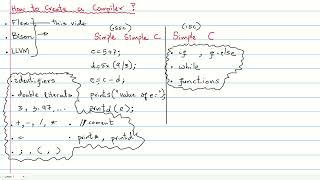 How to Create a Compiler?
• Flex
• Bison
• LLVM
this vide
(SSC)
Simple Simple C
c=5+7;
d=5*(9/3);
e=c-d;
prints("value of e=");
printd(e);
(SC)
Simple C
• if, if-else
• while
• functions
• identifiers
• double literals
3, 3.97, ...
• +, -, /, *
• =
• ; , ( , )
• // coment
• prints, printd